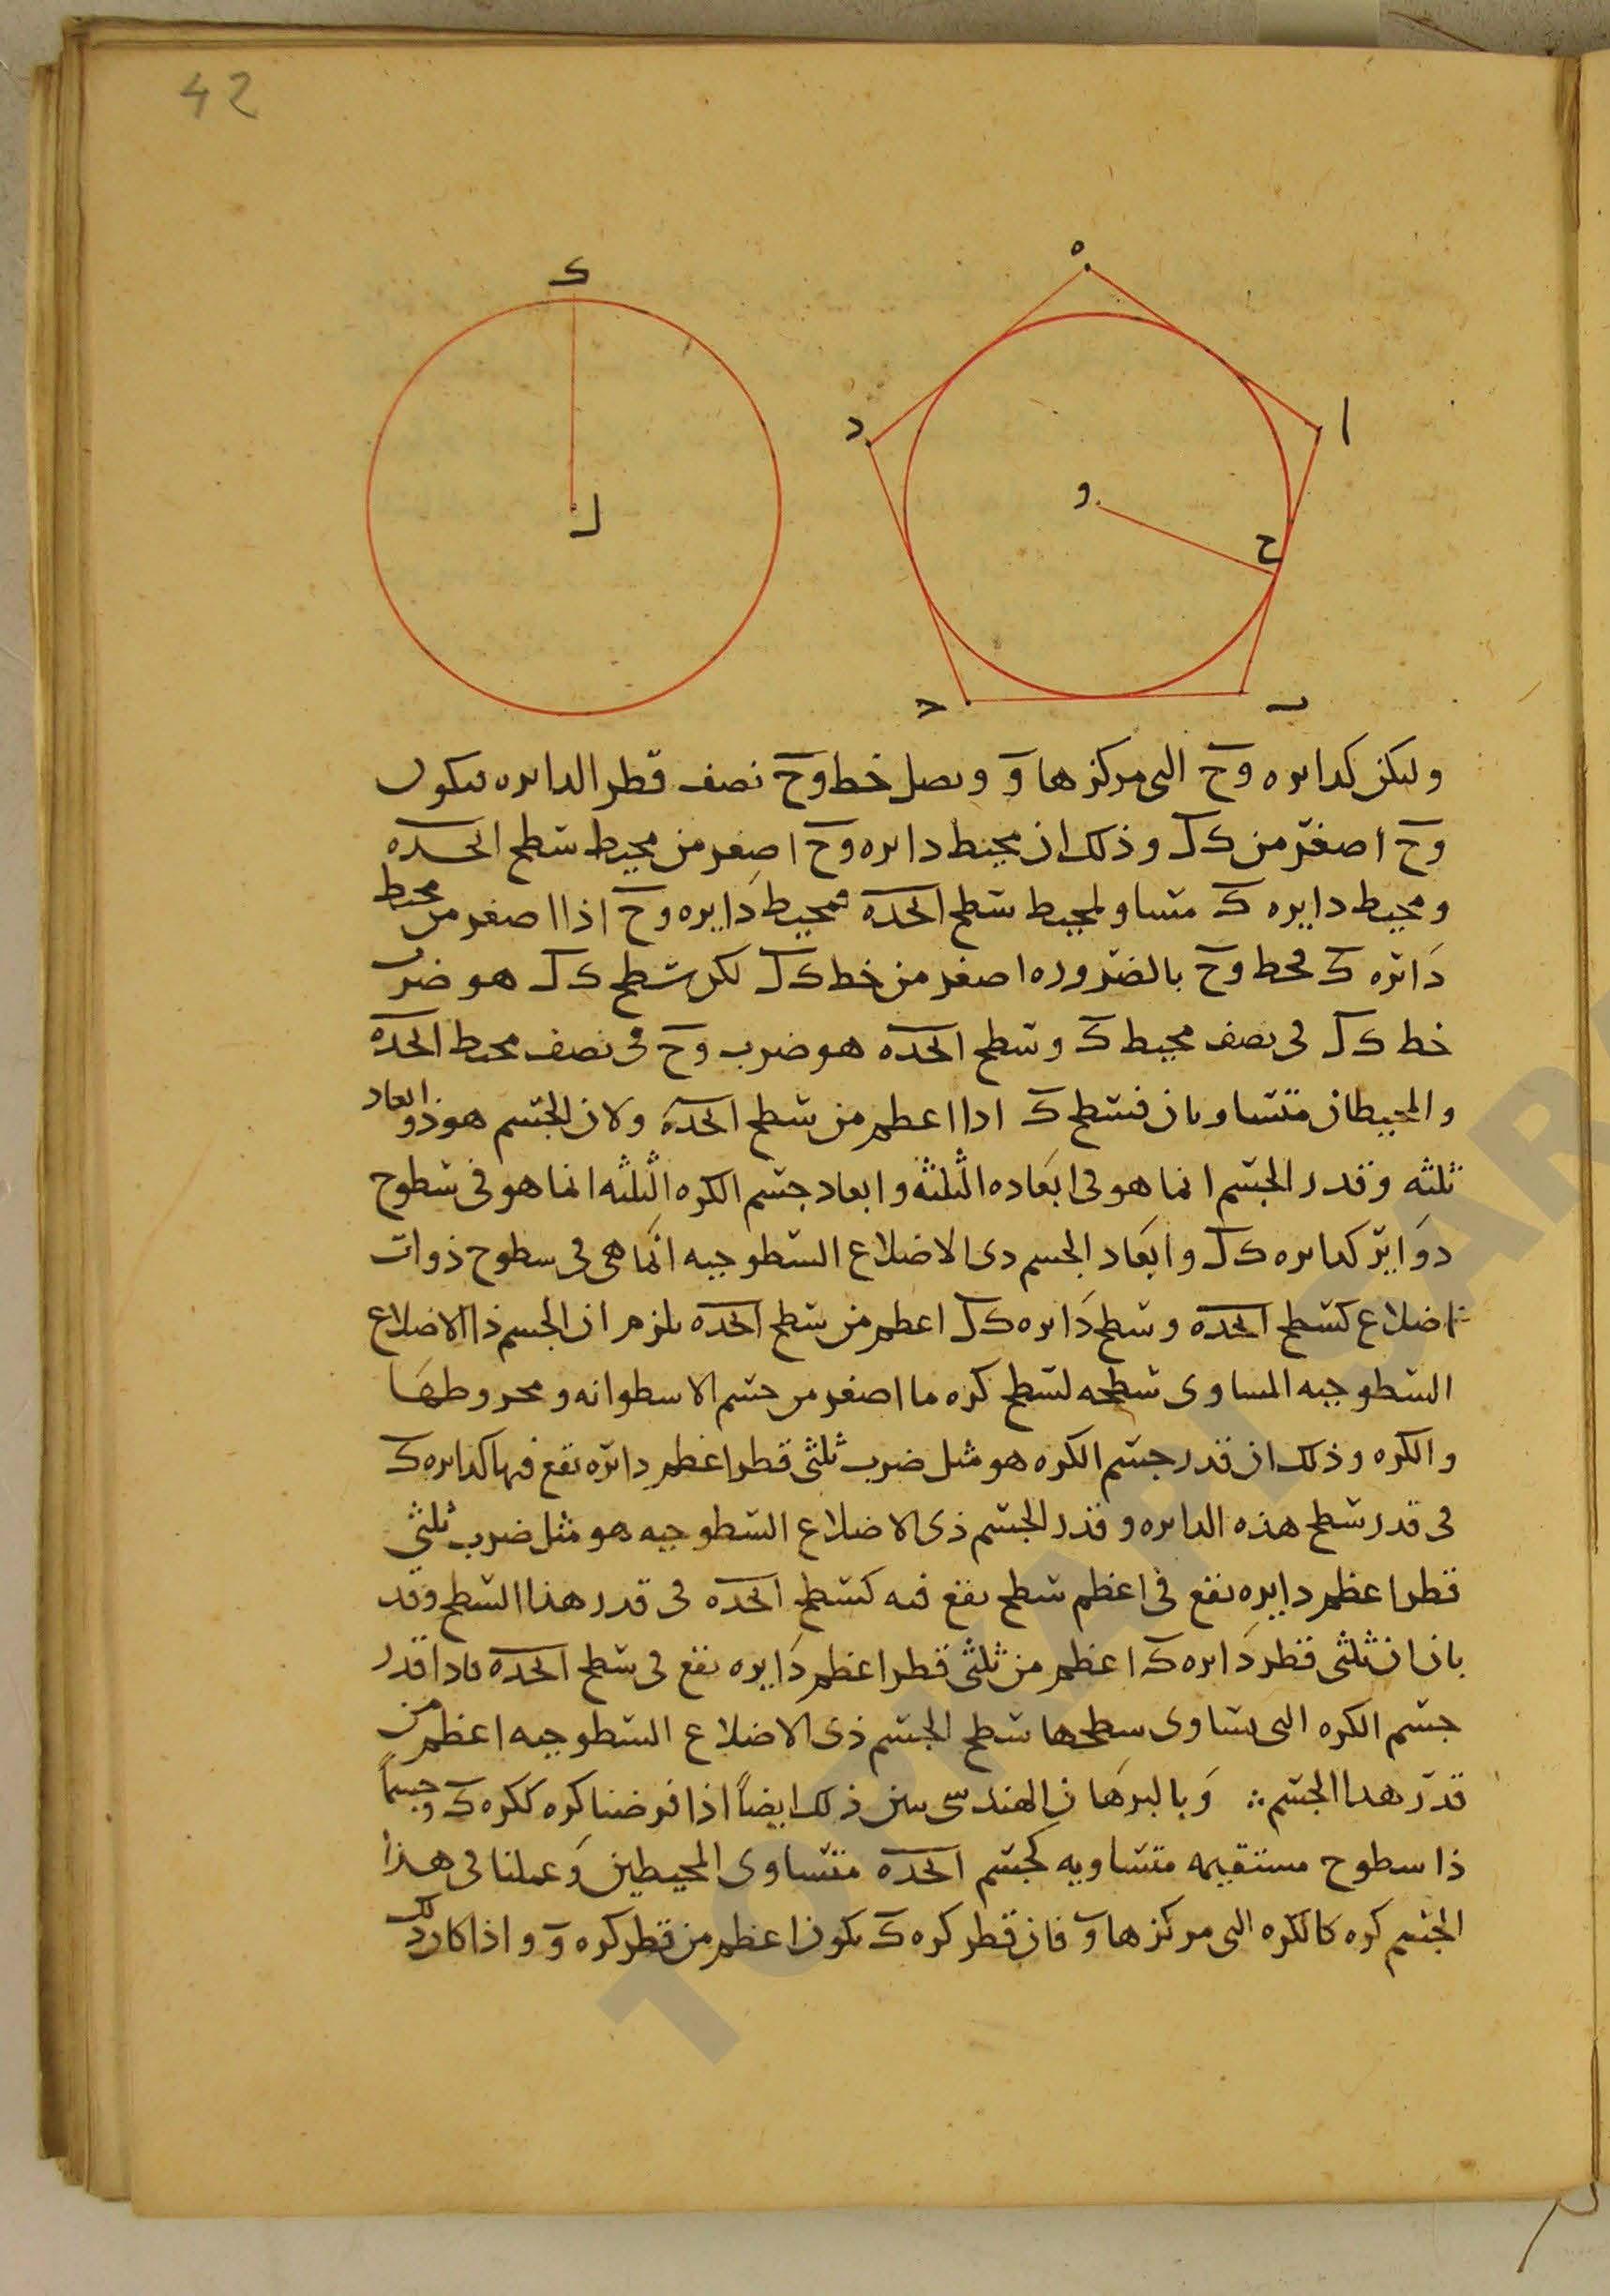 42
ه
ک
ا
د
و
ح
ل
ب
ج
وليكن كدايره وح التى مركزها و ونصل خط وح نصف قطر الدايره فيكون
وح اصغر من كل وذلك ان محيط دايره وح اصغر من محيط سطح ابجده
ومحيط دايره ك مساو لمحيط سطح ابجده فمحيط دايره وح اذا اصغر من محيط
دائره ك فخط وح بالضروره اصغر من خط كل لكن سطح كل هو ضرب
خط كل فى نصف محيط ك وسطح ابجده هو ضرب وح فى نصف محيط ابجده
والمحيطان متساويان فسطح ك اذا اعظم من سطح ابجده ولان الجسم هو ذو ابعاد
ثلثه وقدر الجسم انما هو فى ابعاده الثلثه وابعاد جسم الكره الثلثه انما هو فى سطوح
دوائر كدايره كل وابعاد الجسم ذى الاضلاع السطوحيه انما هى فى سطوح ذوات
اضلاع كسطح ابجده وسطح دايره كل اعظم من سطح ابجده يلزم ان الجسم ذا الاضلاع
السطوحيه المساوى سطحه لسطح كره ما اصغر من جسم الاسطوانه ومخروطها
والكره وذلك ان قدر جسم الكره هو مثل ضرب ثلثى قطر اعظم دائره تقع فيها كدايره ك
فى قدر سطح هذه الدايره وقدر الجسم ذى الاضلاع السطوحيه هو مثل ضرب ثلثى
قطر اعظم دايره تقع فى اعظم سطح يقع فيه كسطح ابجده فى قدر هذا السطح وقد
بان ان ثلثى قطر دايره ك اعظم من ثلثى قطر اعظم دايره تقع فى سطح ابجده فاذا قدر
جسم الكره التى يساوى سطحها سطح الجسم ذى الاضلاع السطوحيه اعظم من
قدر هذا الجسم ∴ وبالبرهان الهندسى يبين ذلك ايضاً اذا فرضنا كره ككره ك وجسماً
ذا سطوح مستقيمه متساويه كجسم ابجده متساوى المحيطين وعملنا فى هذا
الجسم كره كالكره التى مركزها و فان قطر كره ك يكون اعظم من قطر كره و واذا كان ذلك